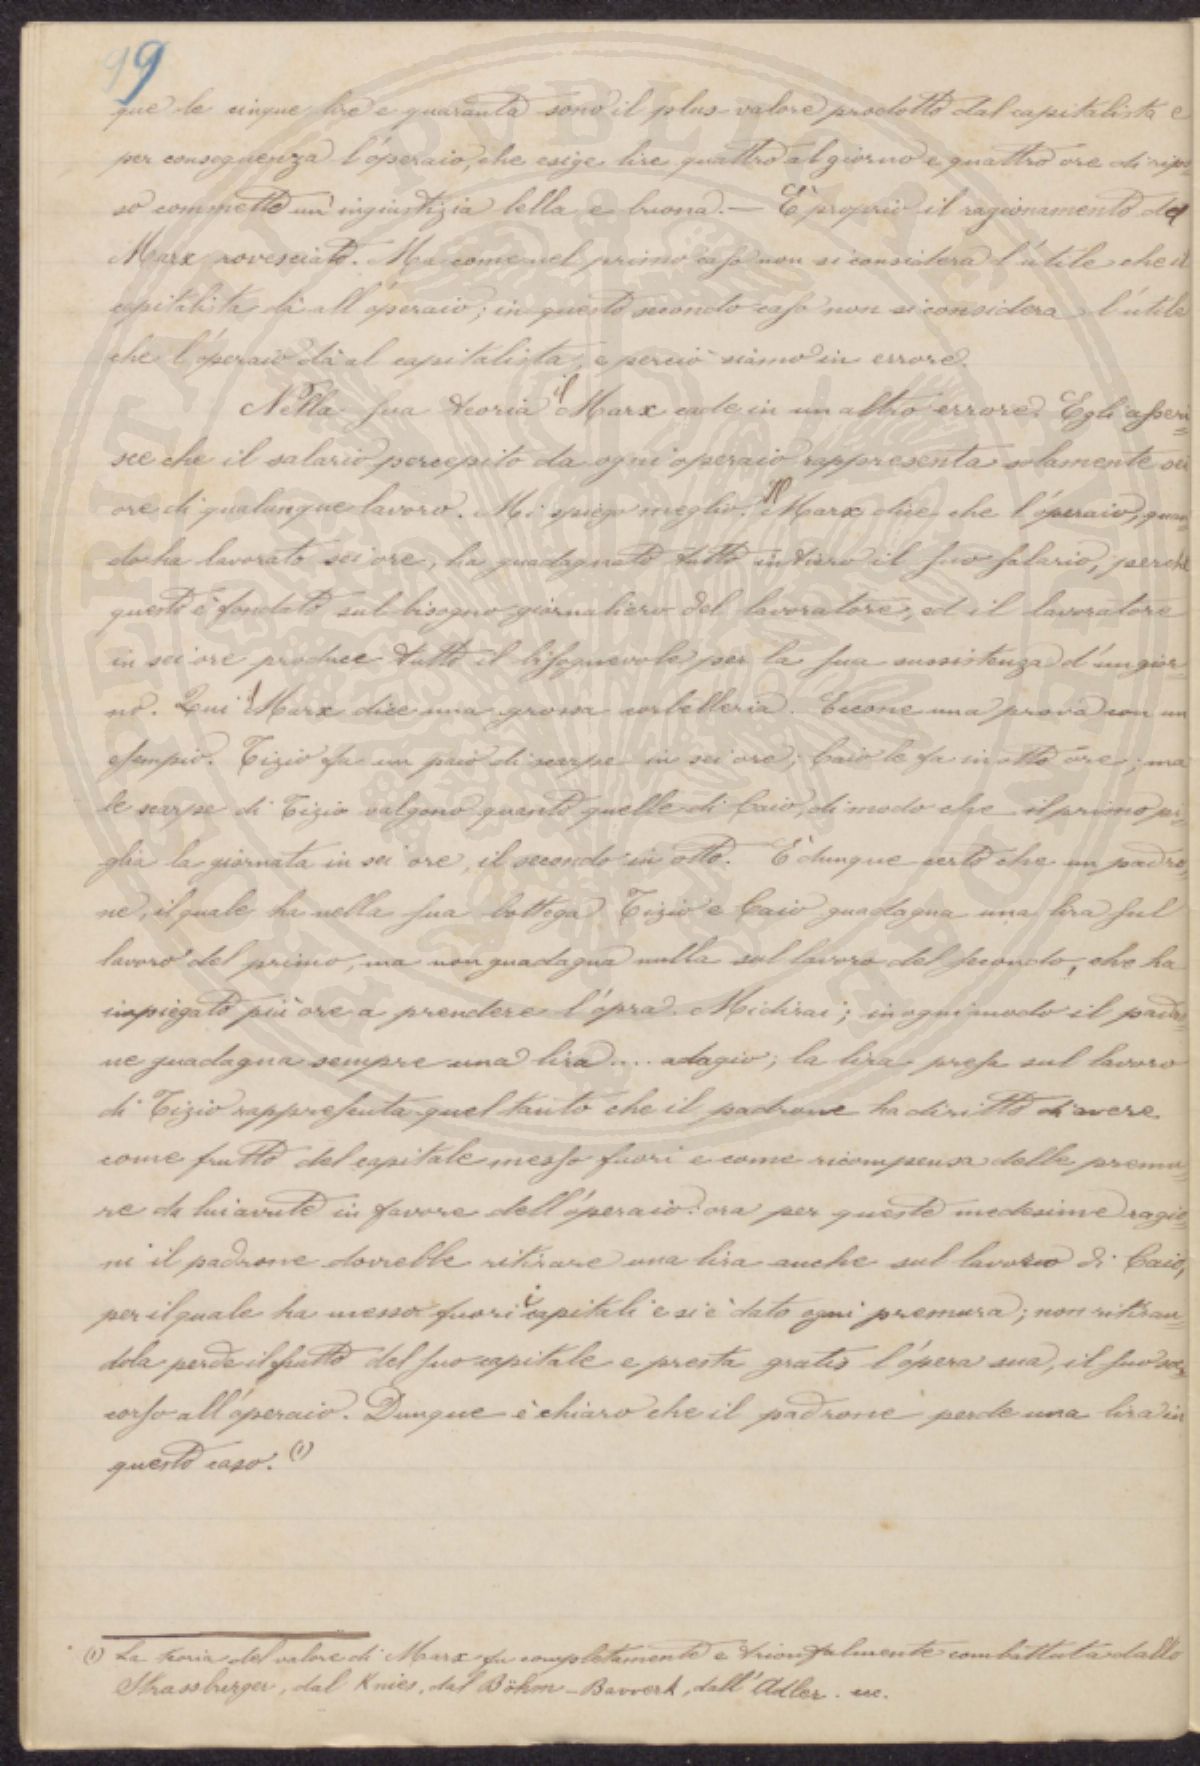 99
que le cinque lire e quaranta sono il plus-valore prodotto dal capitalista e
per conseguenza l'operaio, che esige lire quattro al giorno e quattro ore di ripo-
so commette un'ingiustizia bella e buona. — È proprio il ragionamento del
Marx rovesciato. Ma come nel primo caso non si considera l'utile che il
capitalista dà all'operaio; in questo secondo caso non si considera l'utile
che l'operaio dà al capitalista, e perciò siamo in errore.
Nella sua teoria il Marx cade in un altro errore. Egli asseri-
sce che il salario percepito da ogni operaio rappresenta solamente sei
ore di qualunque lavoro. Mi spiego meglio. Il Marx dice che l'operaio, quan-
do ha lavorato sei ore, ha guadagnato tutto intiero il suo salario, perchè
questo è fondato sul bisogno giornaliero del lavoratore, ed il lavoratore
in sei ore produce tutto il bisognevole per la sua sussistenza d'un gior-
no. Qui il Marx dice una grossa corbelleria. Eccone una prova con un
esempio. Tizio fa un paio di scarpe in sei ore; Caio le fa in otto ore; ma
le scarpe di Tizio valgono quanto quelle di Caio, di modo che il primo pi-
glia la giornata in sei ore, il secondo in otto. È dunque certo che un padro-
ne, il quale ha nella sua bottega Tizio e Caio guadagna una lira sul
lavoro del primo, ma non guadagna nulla sul lavoro del secondo, che ha
impiegato più ore a prendere l'opra. Mi dirai; in ogni modo il padro-
ne guadagna sempre una lira.... adagio; la lira presa sul lavoro
di Tizio rappresenta quel tanto che il padrone ha diritto di avere
come frutto del capitale messo fuori e come ricompensa delle premu-
re da lui avute in favore dell'operaio: ora per queste medesime ragio-
ni il padrone dovrebbe ritirare una lira anche sul lavoro di Caio,
per il quale ha messo fuori i capitali e si è dato ogni premura; non ritiran-
dola perde il frutto del suo capitale e presta gratis l'opera sua, il suo soc-
corso all'operaio. Dunque è chiaro che il padrone perde una lira in
questo caso. (1)
(1) La teoria del valore di Marx fu completamente e trionfalmente combattuta dallo
Strassburger, dal Knies, dal Böhm-Bawerk, dall'Adler. ecc.